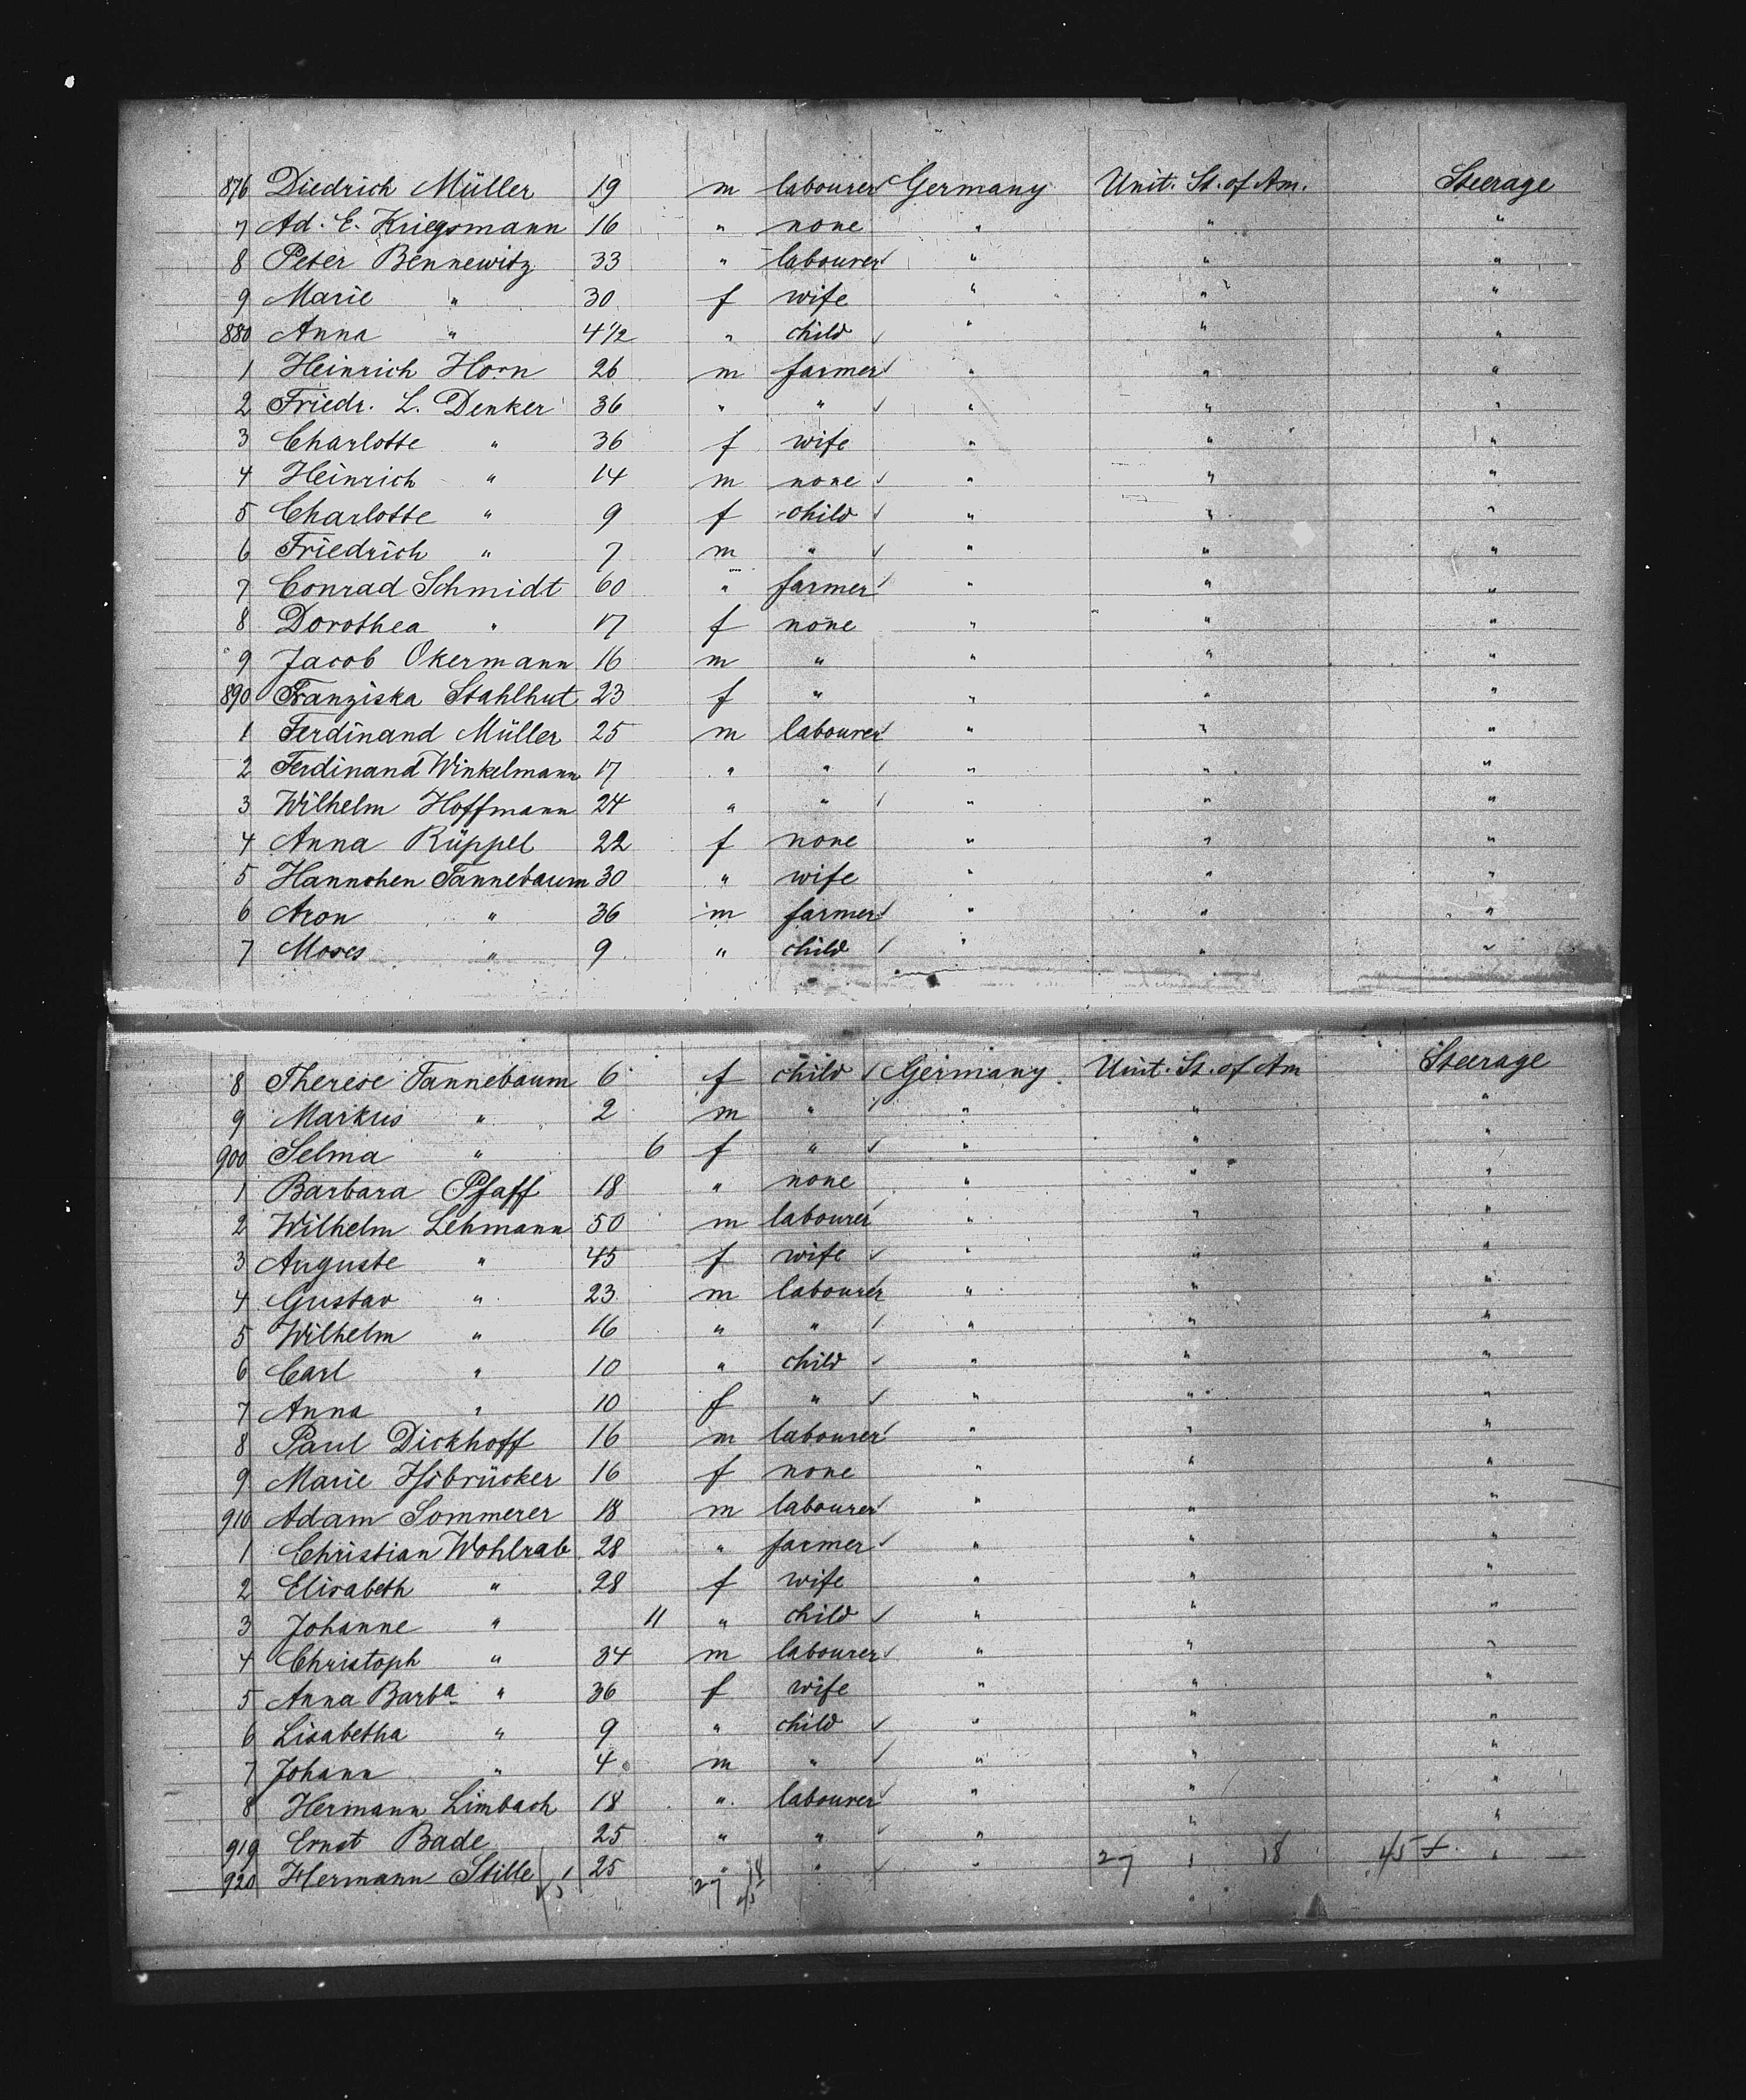 876 Diedrich Müller 19 m labourer Germany Unit. St. of Am. Steerage
7 Ad. E. Kriegsmann 16 " none " " "
8 Peter Bennewitz 33 " labourer " " "
9 Marie " 30 f wife " " "
880 Anna " 4 1/2 " child " " "
1 Heinrich Horn 26 m farmer " " "
2 Friedr. L. Denker 36 " " " " "
3 Charlotte " 36 f wife " " "
4 Heinrich " 14 m none " " "
5 Charlotte " 9 f child " " "
6 Friedrich " 7 m " " " "
7 Conrad Schmidt 60 " farmer " " "
8 Dorothea " 17 f none " " "
9 Jacob Okermann 16 m " " " "
890 Franziska Stahlhut 23 f " " " "
1 Ferdinand Müller 25 m labourer " " "
2 Ferdinand Winkelmann 17 " " " " "
3 Wilhelm Hoffmann 24 " " " " "
4 Anna Rüppel 22 f none " " "
5 Hannchen Tannebaum 30 " wife " " "
6 Aron " 36 m farmer " " "
7 Moses " 9 " child " " "
8 Therese Tannebaum 6 f child Germany Unit. St. of Am Steerage
9 Markus " 2 m " " " "
900 Selma " 6 f " " " "
1 Barbara Pfaff 18 " none " " "
2 Wilhelm Lehmann 50 m labourer " " "
3 Auguste " 45 f wife " " "
4 Gustav " 23 m labourer " " "
5 Wilhelm " 16 " " " " "
6 Carl " 10 " child " " "
7 Anna " 10 f " " " "
8 Paul Dickhoff 16 m labourer " " "
9 Marie 16 f none " " "
910 Adam Sommerer 18 m labourer " " "
1 Christian Wohlrab 28 " farmer " " "
2 Elisabeth " 28 f wife " " "
3 Johanne " 11 " child " " "
4 Christoph " 34 m labourer " " "
5 Anna Barba " 36 f wife " " "
6 Lisabetha " 9 " child " " "
7 Johann " 4 m " " " "
8 Hermann Limbach 18 " labourer " " "
919 Ernst Bade 25 " " " " "
920 Hermann Stille 25 " " " 27 18 45 "
27 18 45